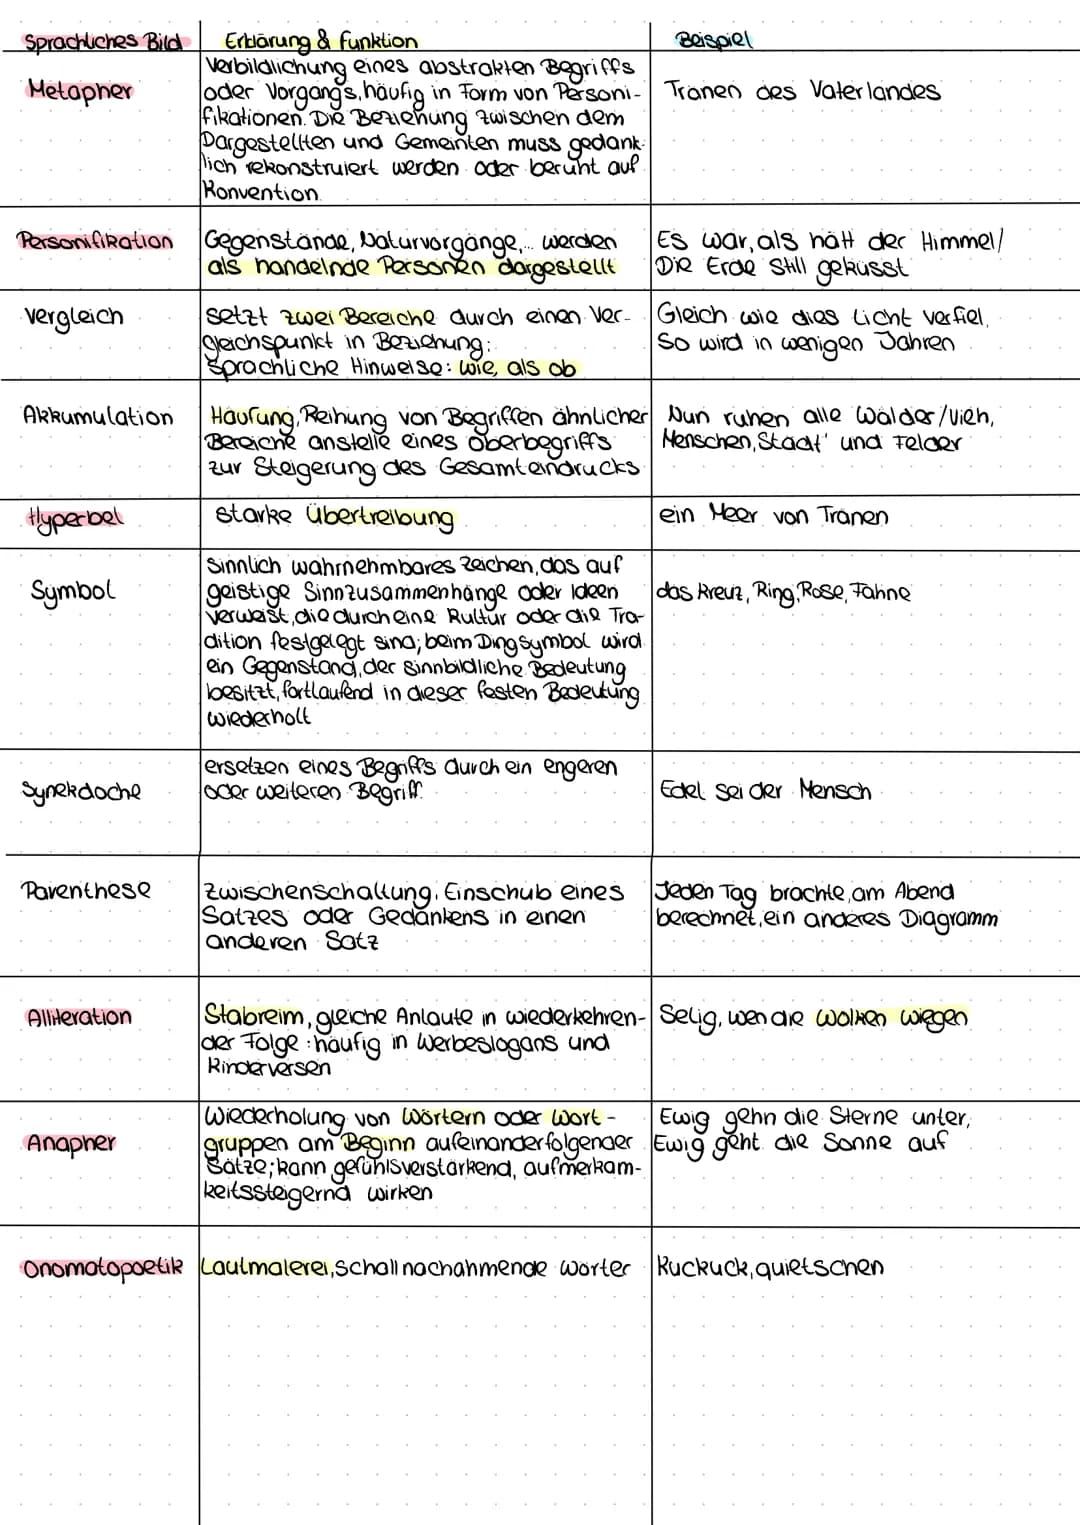 Sprachliches Bild
Erklärung & Funktion
Beispiel
Metapher
Verbildlichung eines abstrakten Begriffs
oder Vorgangs, häufig in Form von Personi-
fikationen. Die Beziehung zwischen dem
Dargestellten und Gemeinten muss gedank-
lich rekonstruiert werden oder beruht auf
Konvention.
Tränen des Vaterlandes
Personifikation
Gegenstände, Naturvorgänge,... werden
als handelnde Personen dargestellt
Es war, als hätt der Himmel/
Die Erde Still geküsst
Vergleich
setzt zwei Bereiche durch einen Ver-
gleichspunkt in Beziehung;
Sprachliche Hinweise: wie, als ob
Gleich wie dies Licht verfiel,
So wird in wenigen Jahren
Akkumulation
Häufung, Reihung von Begriffen ähnlicher
Bereiche anstelle eines Oberbegriffs
zur Steigerung des Gesamteindrucks
Nun ruhen alle Wälder/Vieh,
Menschen, Stadt' und Felder
Hyperbel
starke Übertreibung
ein Meer von Tränen
Symbol
Sinnlich wahrnehmbares Zeichen, das auf
geistige Sinnzusammenhänge oder Ideen
verweist, die durch eine Kultur oder die Tra-
dition festgelegt sind; beim Dingsymbol wird
ein Gegenstand, der sinnbildliche Bedeutung
besitzt, fortlaufend in dieser festen Bedeutung
wiederholt
das Kreuz, Ring, Rose, Fahne
Synekdoche
ersetzen eines Begriffs durch ein engeren
oder weiteren Begriff.
Edel sei der Mensch
Parenthese
Zwischenschaltung, Einschub eines
Satzes oder Gedankens in einen
anderen Satz
Jeden Tag brachte, am Abend
berechnet, ein anderes Diagramm
Alliteration
Stabreim, gleiche Anlaute in wiederkehren-
der Folge: häufig in Werbeslogans und
Kinderversen
Selig, wen die Wolken wiegen
Anapher
Wiederholung von Wörtern oder Wort-
gruppen am Beginn aufeinanderfolgender
Sätze; kann gefühlsverstärkend, aufmerkam-
keitssteigernd wirken
Ewig gehn die Sterne unter,
Ewig geht die Sonne auf
Onomatopoetik
Lautmalerei, schallnachahmende wörter
Kuckuck, quietschen